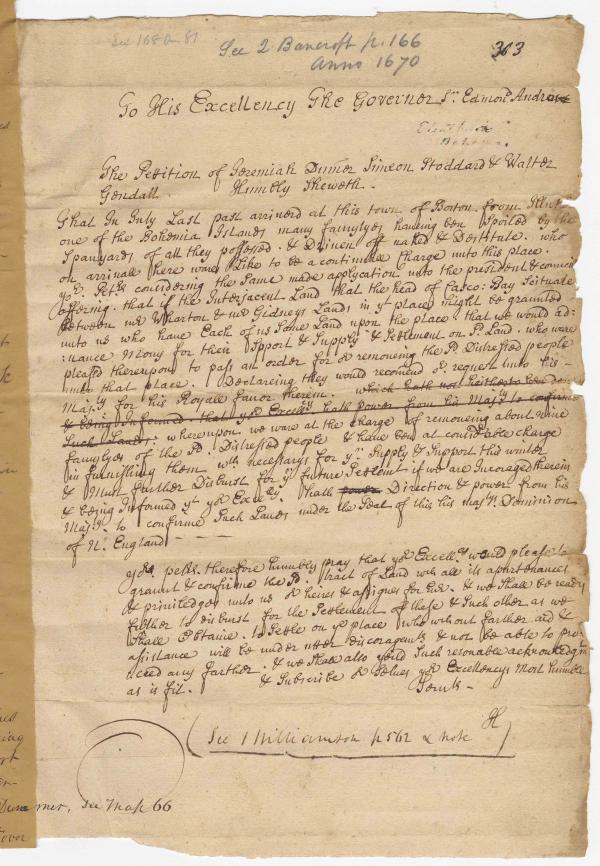 See 168 a. 81
See 2 Bancroft p. 166
Anno 1670
303
To His Excellency The Governer Sr. Edmond. Andros
Eleuthera
Bahama.
The Petition of Jeremiah Dumer Simeon Stoddard & Walter
Gendall Humbly Sheweth.
That In July Last past arrived at this town of Boston from
one of the Bohemia Islands many famylyes haveing ben Spoiled by the
Spanyards of all they possesed. & Driven off naked & Destitute. who
on arrivall here ware Like to be a continuall Charge unto this place.
yor. Petrs. considering the Same made application unto the president &
offering. that if the Interjacent Land that the head of Casco: Bay Scituate
between mr. Wharton & mr. Gidneys Lands in yt. place might be graunted
unto us who have Each of us Some Land upon the place. that we would ad:
:vance Mony for their Spport & Supply & Setlement on sd. Land. who were
pleased thereupon to pass an order for ye removeing the sd. Distressed people
into that place. Declareing they would recomend sd. request unto his
Majty. for his Royall favor therein. which hath not hitherto ben don
& being Informed that yor. Excely. hath power from his Majty. to confirme
Such Lands: whereupon we ware at the charge of removeing about Nine
famylyes of the sd. Distressed people & have ben at considrable charge
in furnishing them wth. necessarys for yr. Supply & Support this winter
& Must farther Disburst for ye. future Setlement if we are Incoraged therein
& being Informed yt. yor. Excely. Hath power Direction & power from his
Majty. to confirme Such Lands under the Seal of this his majts. Dominion
of N. England
yor. petrs. therefore humbly pray that yor. Excellcy. would please to
graunt & confirme the sd. tract of Land with all its apurtenances
& priviledges unto us or heires & assignes for Ever. & we Shall be ready
further to disburst for the Setlement of these & Such other as we
Shall Obtaine. to Settle on ye place who without farther aid &
assistance will be under utter discoragemt. & not be able to pro:
:ceed any farther. & we Shall also yeild Such resonable
as is fit. & Subscribe or Selves yor. Excellencys Most humble
Servts.
(See 1 Williamson p. 562 & note H)
mer, see Mass 66